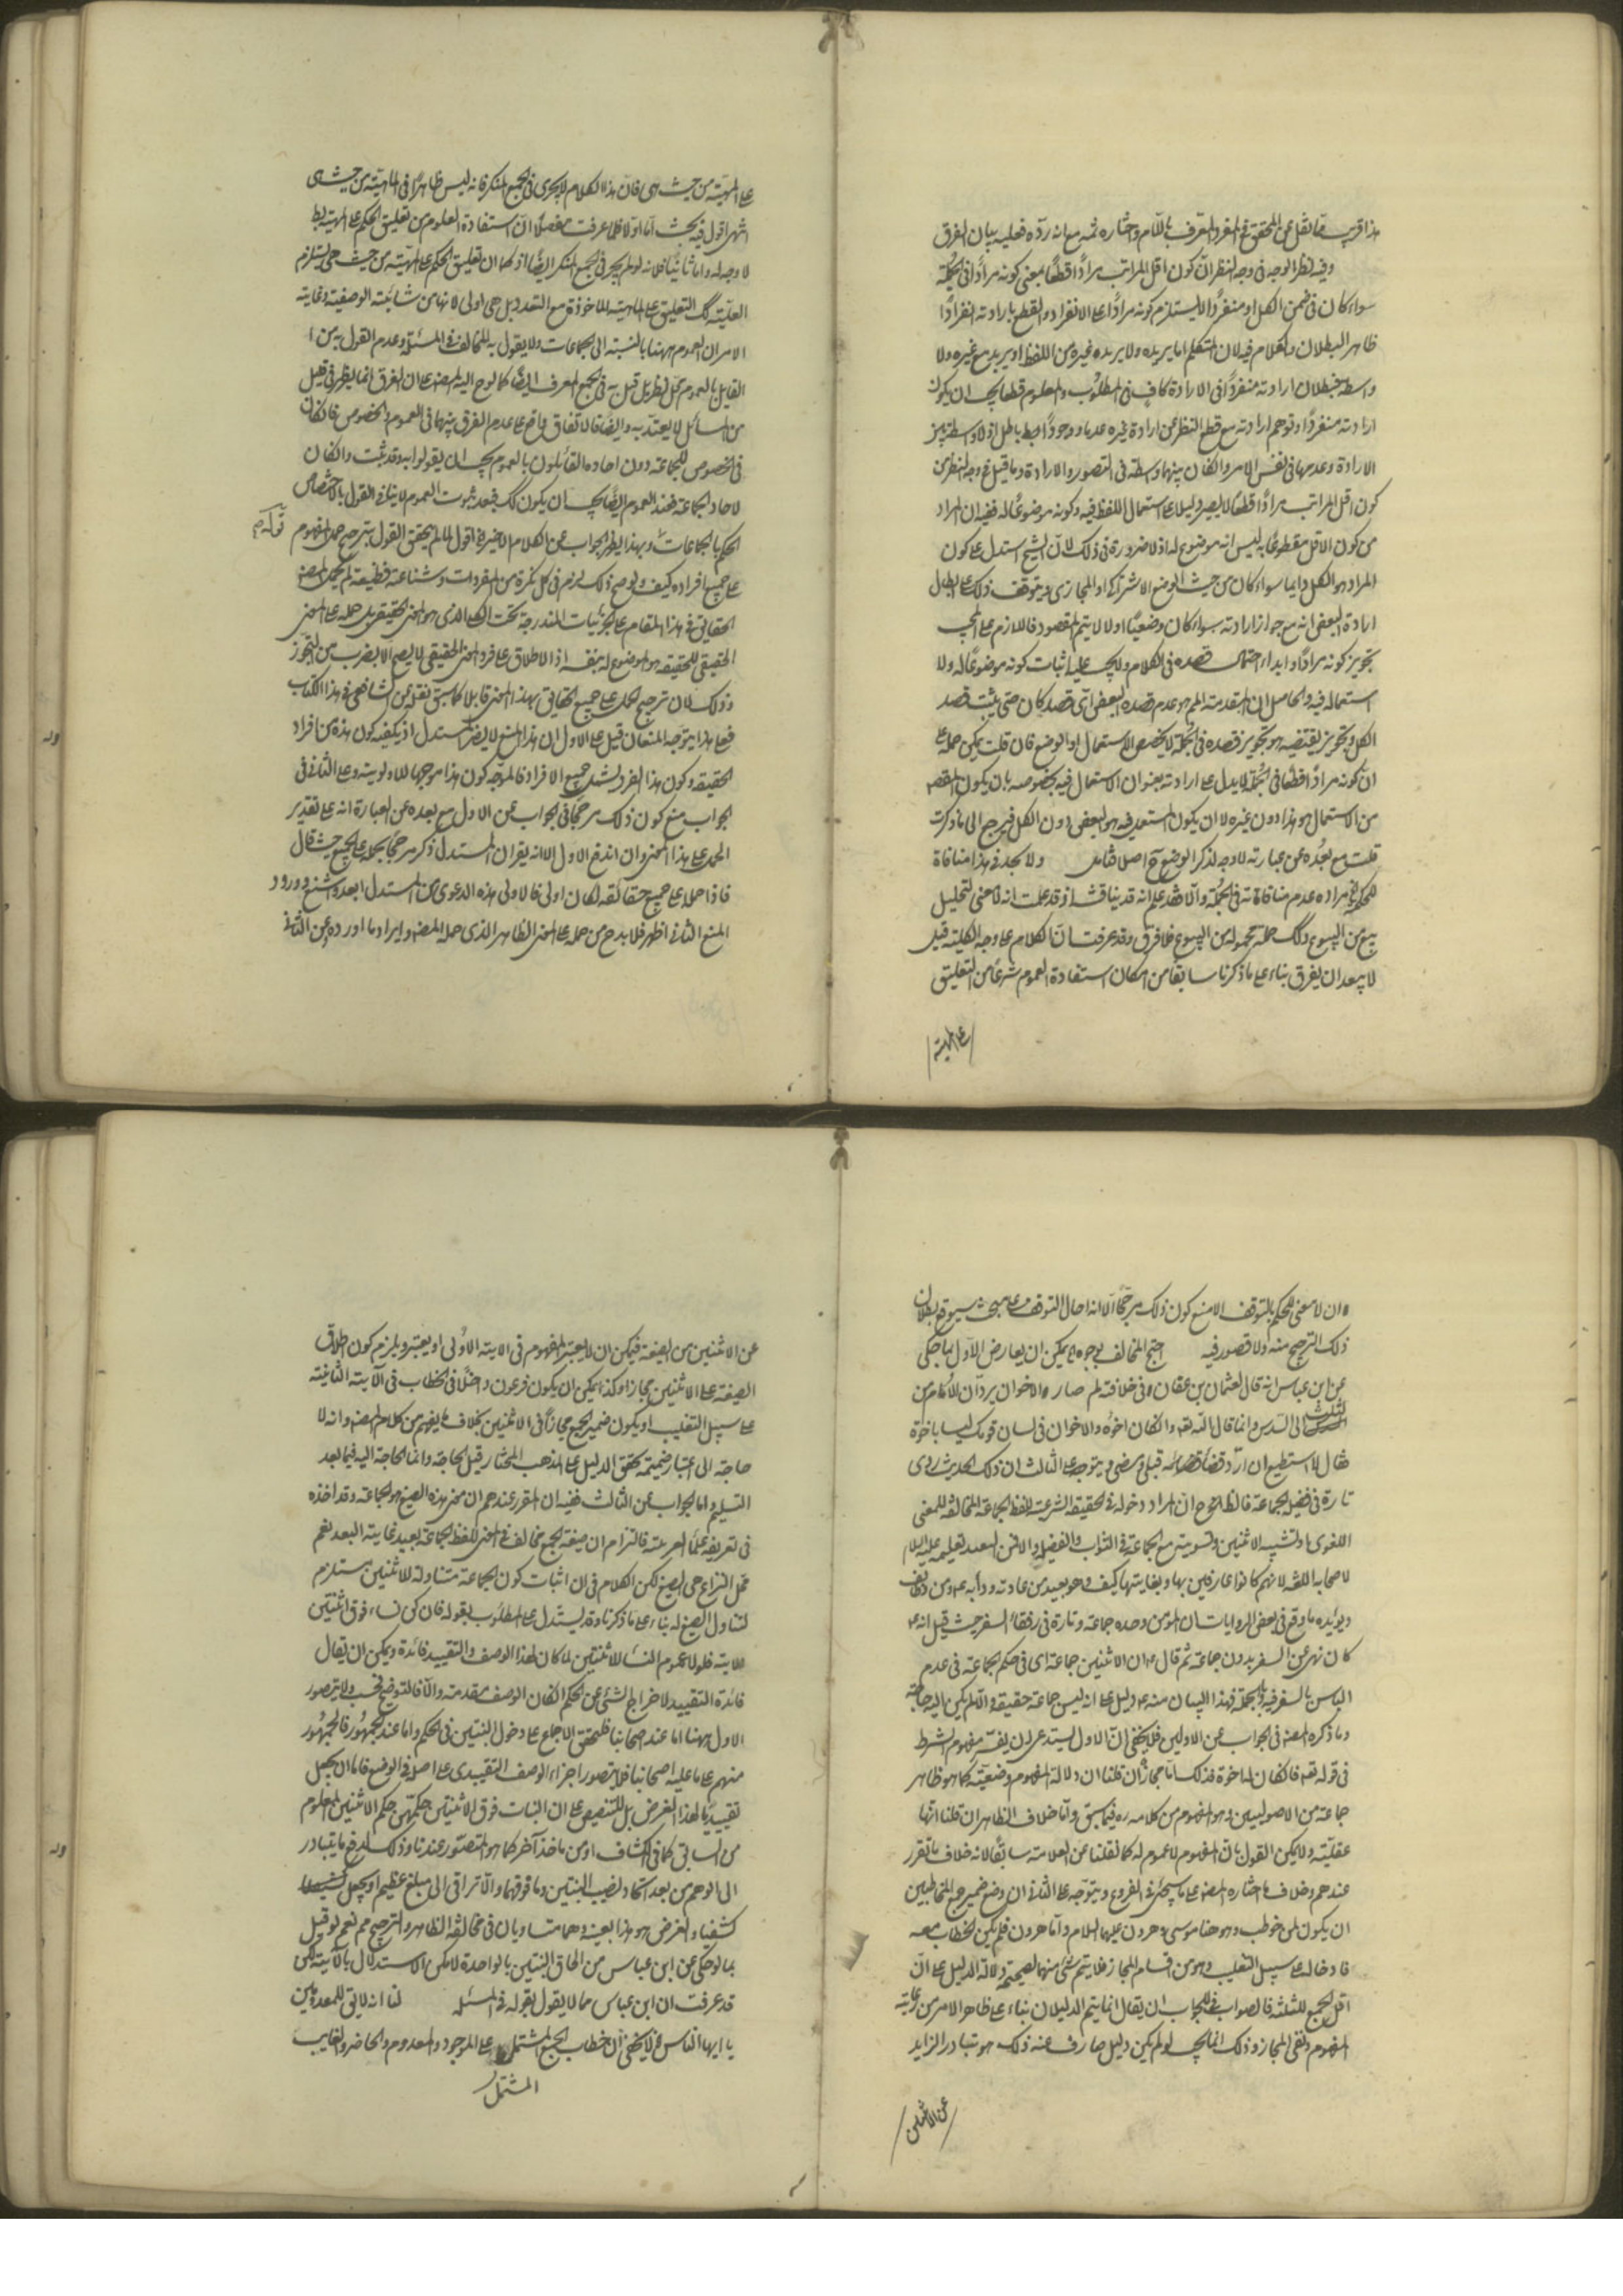 هذا قريب مما نقل عن المحقق في المفرد المعرف باللام واختاره ثمه مع انه رده فعليه ببيان الفرق
وفيه نظر الوجه في وجه النظر ان كون اقل المراتب مرادا قطعا بمعنى كونه مرادا في الجملة
سواء كان في ضمن الكل او منفردا لا يستلزم كونه مرادا على الانفراد والقطع بارادته انفرادا
ظاهر البطلان والكلام فيه لان المتكلم اما يريده ولا يريده غيره من اللفظ او يريد مع غيره ولا
واسطة فبطلان ارادته منفردا في الارادة كاف في المطلوب والمعلوم قطعا يجب ان يكون
ارادته منفردا وتوهم ارادته مع قطع النظر عن ارادة غيره عدما ووجودا باطل اذ لا واسطة بين
الارادة وعدمها في نفس الامر وان كان بينهما واسطة في التصور والارادة وما قيل في وجه النظر من
كون اقل المراتب مرادا قطعا لا يصير دليلا على استعمال اللفظ فيه وكونه موضوعا له ففيه ان المراد
من كون الاقل مقطوعا به ليس انه موضوع له اذ لا ضرورة في ذلك لان الشيخ استدل على كون
المراد هو الكل دايما سواء كان من حيث الوضع الاشتراكي او المجازى ويتوقف ذلك على ابطال
ارادة البعض انه مع جواز ارادته سواء كان وضعيا او لا لا يتم المقصود فاللازم على المجيب
تجويز كونه مرادا وابداء احتمال قصده في الكلام ولا يجب عليه اثبات كونه موضوعا له ولا
استعماله فيه والحاصل ان المقدمة الـ هو عدم قصده البعض اى قصد كان حتى يثبت قصد
الكل وتجويز نقيضه هو تجويز قصده في الجملة لا بخصوص الاستعمال او الوضع فان قلت يمكن حمله على
ان كونه مرادا قطعا في الجملة لا يدل على ارادته بعنوان الاستعمال فيه بخصوصه بان يكون المقصود
من الاستعمال هو هذا دون غيره لا ان يكون المستعمل فيه هو البعض دون الكل فيرجع الى ما ذكرت
قلت مع بعده عن عبارته لا وجه لذكر الوضع ح اصلا فتامل ولا يجد في هذا منافاة
للحكمة مراده عدم منافاته في الجملة والا فقد علم انه قد يناقش اذ قد علمت انه لا معنى لتحليل
بيع من البيوع وكك حمله جملة من البيوع فلا فرق وقد عرفت ان الكلام على وجه الكلية قيل
لا يبعد ان يفرق بناء على ما ذكرنا سابقا من امكان استفادة العموم شرعا من التعليق
على المهية
على المهية من حيث هى فان هذا الكلام لا يجرى في الجمع المنكر فانه ليس ظاهرا في الماهية من حيث هى
انتهى اقول فيه بحث اما اولا فلما عرفت مفصلا ان استفادة العموم من تعليق الحكم على المهية بط
لا وجه له واما ثانيا فلانه لو لم يجر في الجمع المنكر ايضا اذ كما ان تعليق الحكم على المهية من حيث هى يستلزم
العلية كك التعليق على الماهية الماخوذة مع التعدد بل هى اولى لانها من شائبة الوصفية وغاية
الامر ان العموم ههنا بالنسبة الى الجماعات ولا يقول به المخالف في المسئلة وعدم القول به من
القايل بالعموم محل نظر بل قيل به في الجمع المعرف ايضا كما لوح اليه المصنف على ان الفرق انما يظهر في قليل
من المسائل لا يعتد به وايضا فالاتفاق واقع على عدم الفرق بينهما في العموم والخصوص فان كان
في الخصوص للجماعة دون احاده القائلون بالعموم يجب ان يقولوا به وقد ثبت وان كان
لاحاد الجماعة فعند العموم ايضا يجب ان يكون كك فبعد ثبوت العموم لا ينافى القول باختصاص
الحكم بالجماعات وبهذا يظهر الجواب عن الكلام الاخير في اقول لما لم يتحقق القول بترجيح حمل المفهوم
على جميع افراده كيف ولو صح ذلك لزم في كل نكرة من المفردات وشناعته فظيعة لم يحمل المصنف
الحقايق في هذا المقام على الجزئيات المندرجة تحت الكلى الذى هو المعنى الحقيقى بل حمله على المعنى
الحقيقى للحقيقة هو الموضوع له بنفسه اذ الاطلاق على فرد المعنى الحقيقى لا يصح الا بضرب من التجوز
وذلك لان ترجيح الحمل على جميع الحقايق بهذا المعنى قابلا كما سبق نقله عن الشافعى في هذا الكتاب
فعلى هذا يتوجه المنعان قيل على الاول ان هذا المنع لا يضر المستدل اذ يكفيه كون هذه من افراد
الحقيقة وكون هذا الفرد يشمل جميع الافراد فالمتوجه كون هذا موجبا للاولوية وعلى الثانى في
الجواب منع كون ذلك مرجحا في الجواب عن الاول مع بعده عن العبارة انه على تقدير
الحمل على هذا المعنى وان اندفع الاول الا انه يقر ان المستدل ذكر مرجحا بحمله على الجميع حيث قال
فاذا حمله على جميع حقائقه لكان اولى فالاولى هذه الدعوى من المستدل ابعد واشنع وورود
المنع الثانى اظهر فلا بد ح من حمله على المعنى الظاهر الذى حمله المصنف وايراد ما اورده عن الثانى
ان لا معنى للحكم بالتوقف الا منع كون ذلك مرجحا الا انه احال التوقف على مبحث سيوقع بطلان
ذلك الترجيح منه ولا قصور فيه احتج المخالف بوجوه يمكن ان يعارض الاول بما حكى
عن ابن عباس انه قال لعثمان بن عفان في خلافته لم صار الاخوان يردان الام من
الثلث الى السدس وانما قال الله تعه وان كان اخوة والاخوان في لسان قومك ليسا باخوة
فقال لا استطيع ان ارد قضاء قضى به قبلى ومضى ويتوجه على الثالث ان ذلك الحديث روى
تارة في فضيل الجماعة فالظاهر ح ان المراد دخوله في الحقيقة الشرعية للفظ الجماعة المخالفة للمعنى
اللغوى او تشبيه الاثنين وتسويته مع الجماعة في الثواب والفضيلة والاظهر لبعد تعليمه عليه السلام
لاصحابه اللغة لانهم كانوا عارفين بها وبغايتها كيف وهو بعيد من عادته ودأبه ومن وظائف
ويؤيده ما وقع في بعض الروايات ان المؤمن وحده جماعة وتارة في رفقاء السفر حيث قيل انه
كان نهى عن السفر بدون جماعة ثم قال ان الاثنين جماعة اى في حكم الجماعة في عدم
الباس بالسفر فيه وبالجملة فهذا البيان منه دليل على انه ليس جماعة حقيقة والا لم يكن اليه حاجة
وما ذكره المصنف في الجواب عن الاولين فلا يخفى ان الاول يستدعى ان يفسر مفهوم الشرط
في قوله تعه فان كان له اخوة فذلك اما مجاز ان قلنا ان دلالة المفهوم وضعية كما هو ظاهر
جماعة من الاصوليين وهو المفهوم من كلامه ره فيما سبق واما خلاف الظاهر ان قلنا انها
عقلية ولا يمكن القول بان المفهوم لا عموم له كما نقلنا عن العلامة سابقا لانه خلاف ما تقرر
عندهم وخلاف ما اختاره المصنف على ما سيجئ في الفروع ويتوجه على الثانى ان وضع ضمير جمع المخاطبين
ان يكون لمن خوطب وهو هنا موسى وهرون عليهما السلام واما هرون فلم يكن الخطاب معه
فادخاله على سبيل التغليب وهو من اقسام المجاز فلا يتم شئ منهما لصحة دلالة الدليل على ان
اقل الجمع للثلثة فالصواب في الجواب ان يقال انما يتم الدليلان بناء على ظاهر الامر من رعاية
المفهوم ونفى المجاز وذلك انما يجب لو لم يكن دليل صارف عنه ذلك هو تبادر الزايد
عن الاثنين
عن الاثنين من الصيغة فيمكن ان لا يعتبر المفهوم في الاية الاولى او يعتبر ويلزم كون اطلاق
الصيغة على الاثنين مجازا وكذا يمكن ان يكون فرعون داخلا في الخطاب في الآية الثانية
على سبيل التغليب او يكون ضمير الجمع مجازا في الاثنين بخلاف ما يفهم من كلام المصنف وانه لا
حاجة الى اعتبار ضميمة تحقق الدليل على المذهب المختار قيل الحاجة وانما الحاجة اليه فيما بعد
التسليم واما الجواب عن الثالث ففيه ان المقرر عندهم ان معنى هذه الصيغ هو الجماعة وقد اخذه
في تعريفه علماء العربية فالتزام ان صيغة الجمع مخالف في المعنى للفظ الجماعة بعيد غاية البعد نعم
محل النزاع هى الصيغ لكن الكلام في ان اثبات كون الجماعة متناولة للاثنين يستلزم
لتناول الصيغ له بناء على ما ذكرنا وقد يستدل على المطلوب بقوله فان كن نساء فوق اثنتين
الاية فلولا عموم النساء للاثنتين لما كان لهذا الوصف والتقييد فائدة ويمكن ان يقال
فائدة التقييد لاخراج الشئ عن الحكم ان كان الوصف مقدمة والا فالتوضيح فحسب ولا يتصور
الاول ههنا اما عند اصحابنا فلتحقق الاجماع على دخول البنتين في الحكم واما عند الجمهور فالجمهور
منهم على ما عليه اصحابنا فلا يتصور اجراء الوصف التقييدى على اصله في الوضع فاما ان يجعل
تقييديا لهذا الغرض بل للتنصيص على ان البنات فوق الاثنتين حكمهن حكم الاثنتين المعلوم
من السابق كما في الكشاف او من ماخذ آخر كما هو المتصور عندنا وذلك لدفع ما يتبادر
الى الوهم من بعد اتحاد نصيب البنتين وما فوقهما والا تراقى الى مبلغ عظيم او يجعل
كشفيا والغرض هو هذا بعينه وهما متساويان في مخالفة الظاهر والترجيح مم نعم لو قيل
بما لو حكى عن ابن عباس من الحاق البنتين بالواحدة لامكن الاستدلال بالآية لكن
قد عرفت ان ابن عباس مما لا يقول بقوله في المسئلة لنا انه لا يق للمعدومين
يا ايها الناس لا يخفى ان خطاب الجمع المشتمل على الموجود والمعدوم والحاضر والغايب
المشتمل